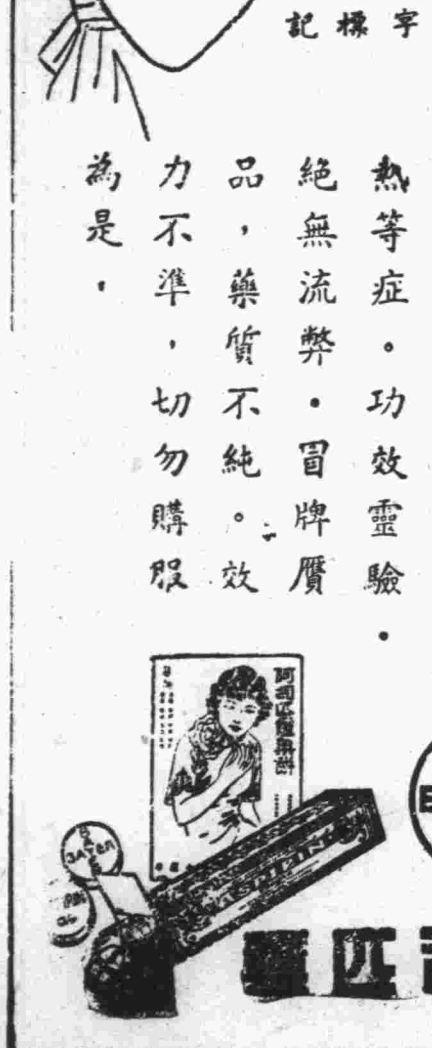 字標記
熱等症。功效靈驗．
絕無流弊．冒牌贋
品，藥質不純。效
力不準，切勿購服
為是，
阿司匹靈藥餅
BAYER
匹靈